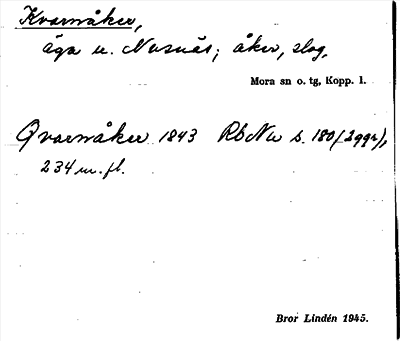 Kvarnåker,
äga u. Nusnäs; åker, slog,
Mora sn o. tg, Kopp. l.
Qvarnåker 1843 RbNu s. 180 (2ggr),
234 m. fl.
Bror Lindén 1945.